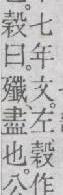 七年文左穀作
穀曰殲盡也公